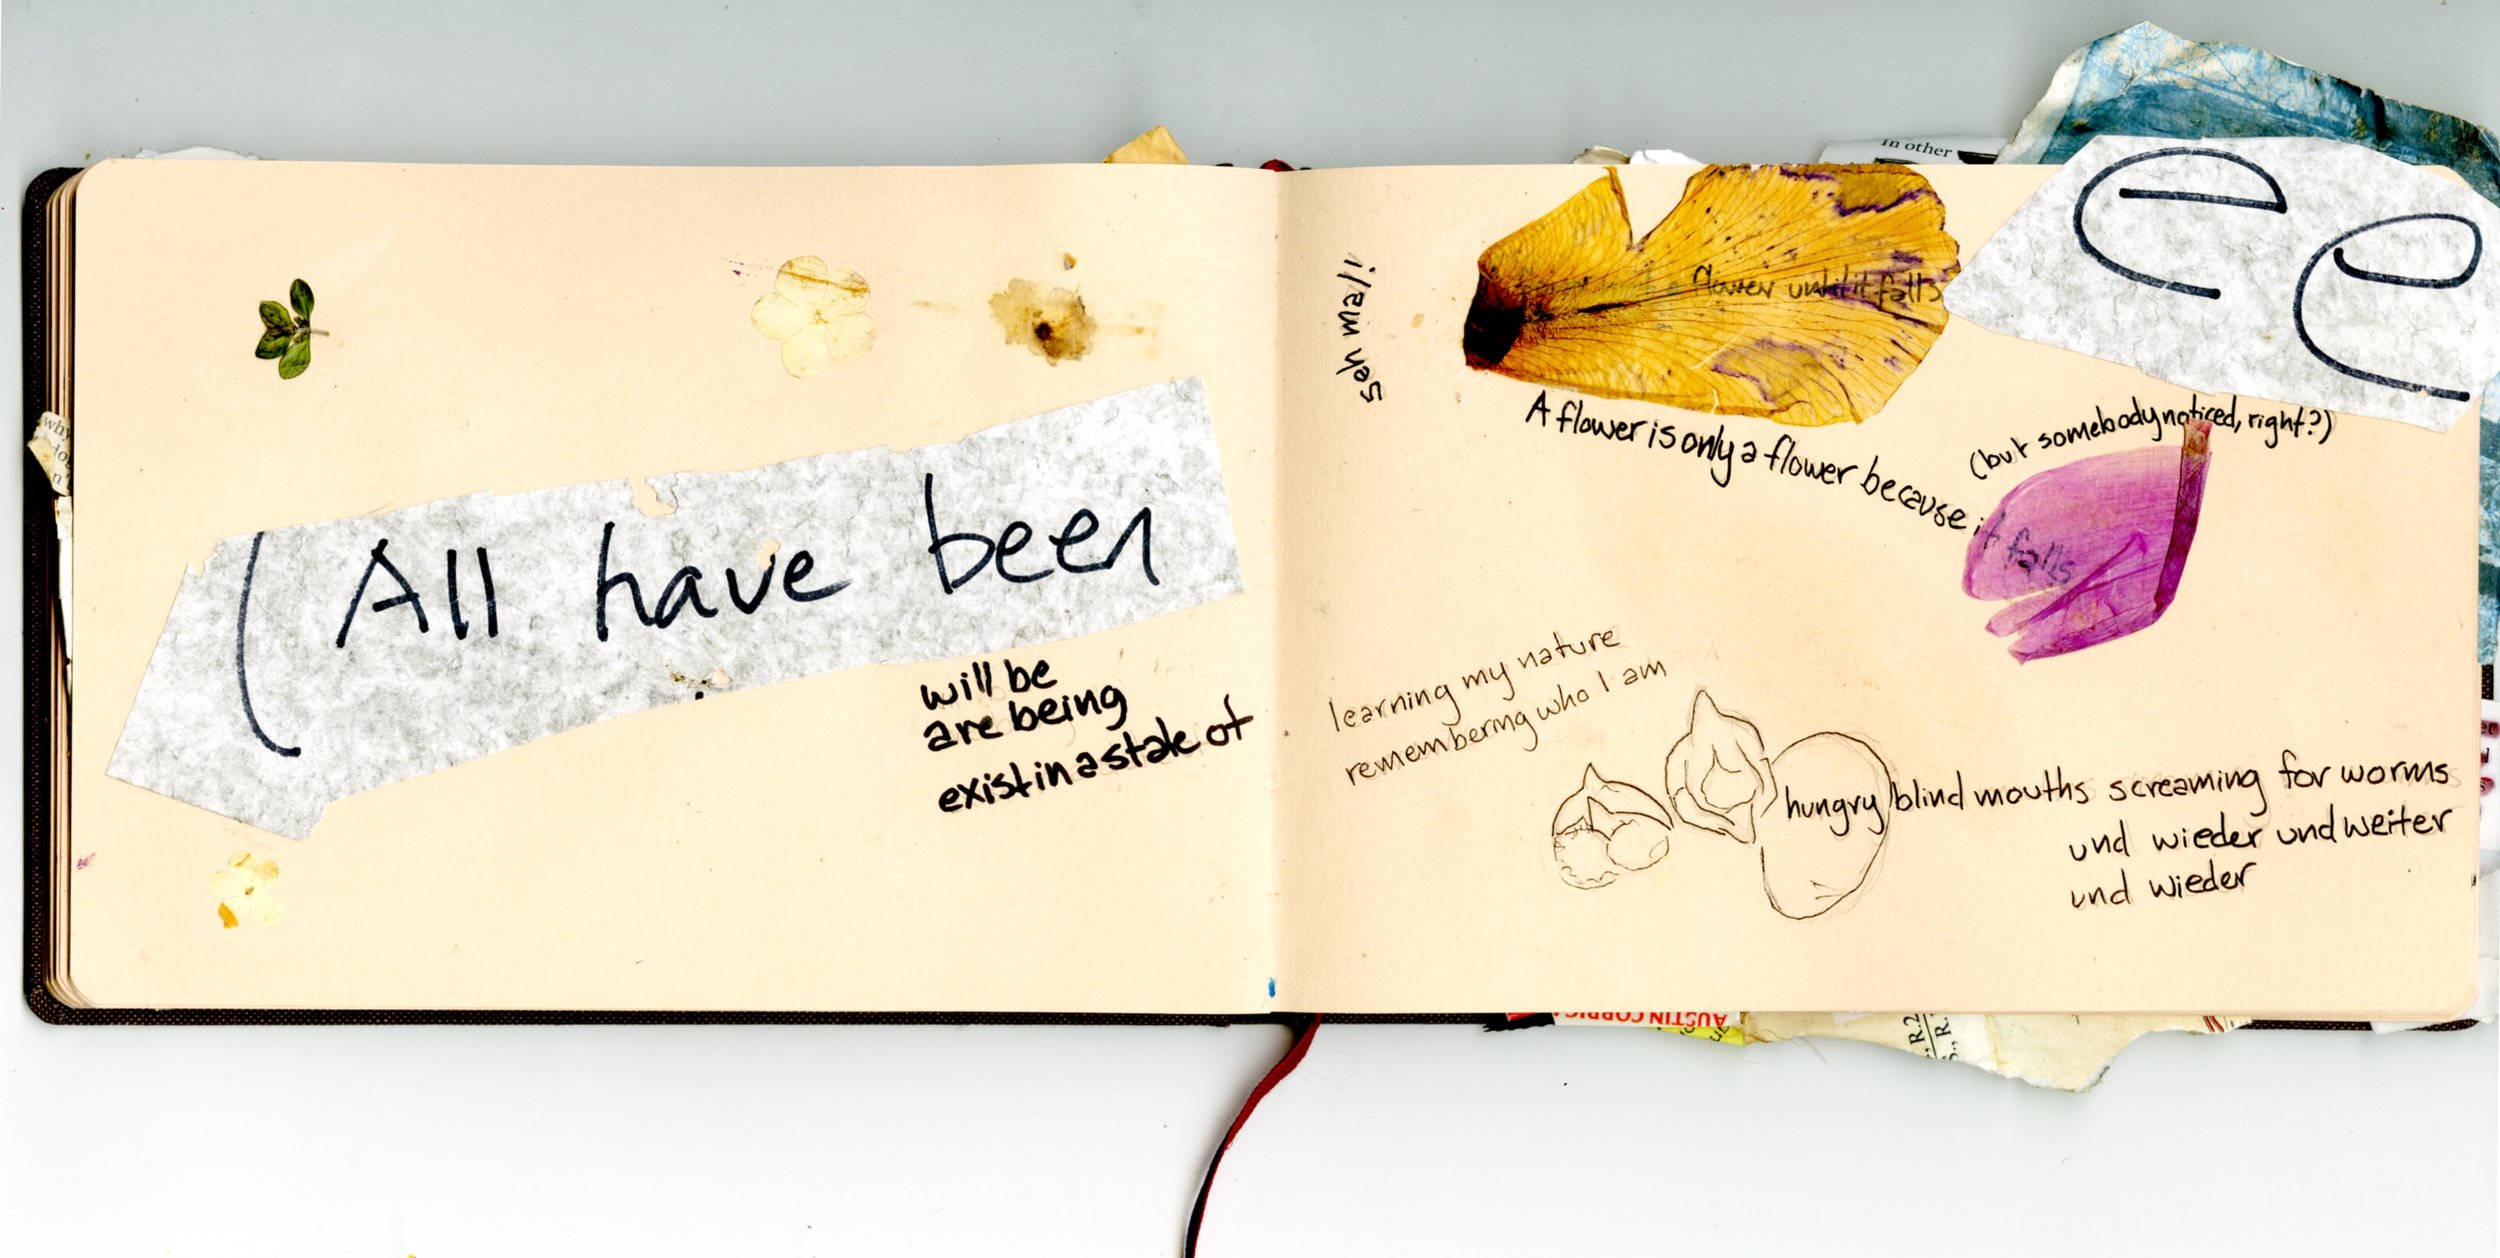 (All have been
will be
are being
exist in a state of
why
i/am was
flower until it falls
A flower is only a flower because it falls
(but somebody noticed, right?)
e e
In other
learning my nature
remembering who I am
hungry blind mouths screaming for worms
und wieder und weiter
und wieder
AUSTIN CORRIGA